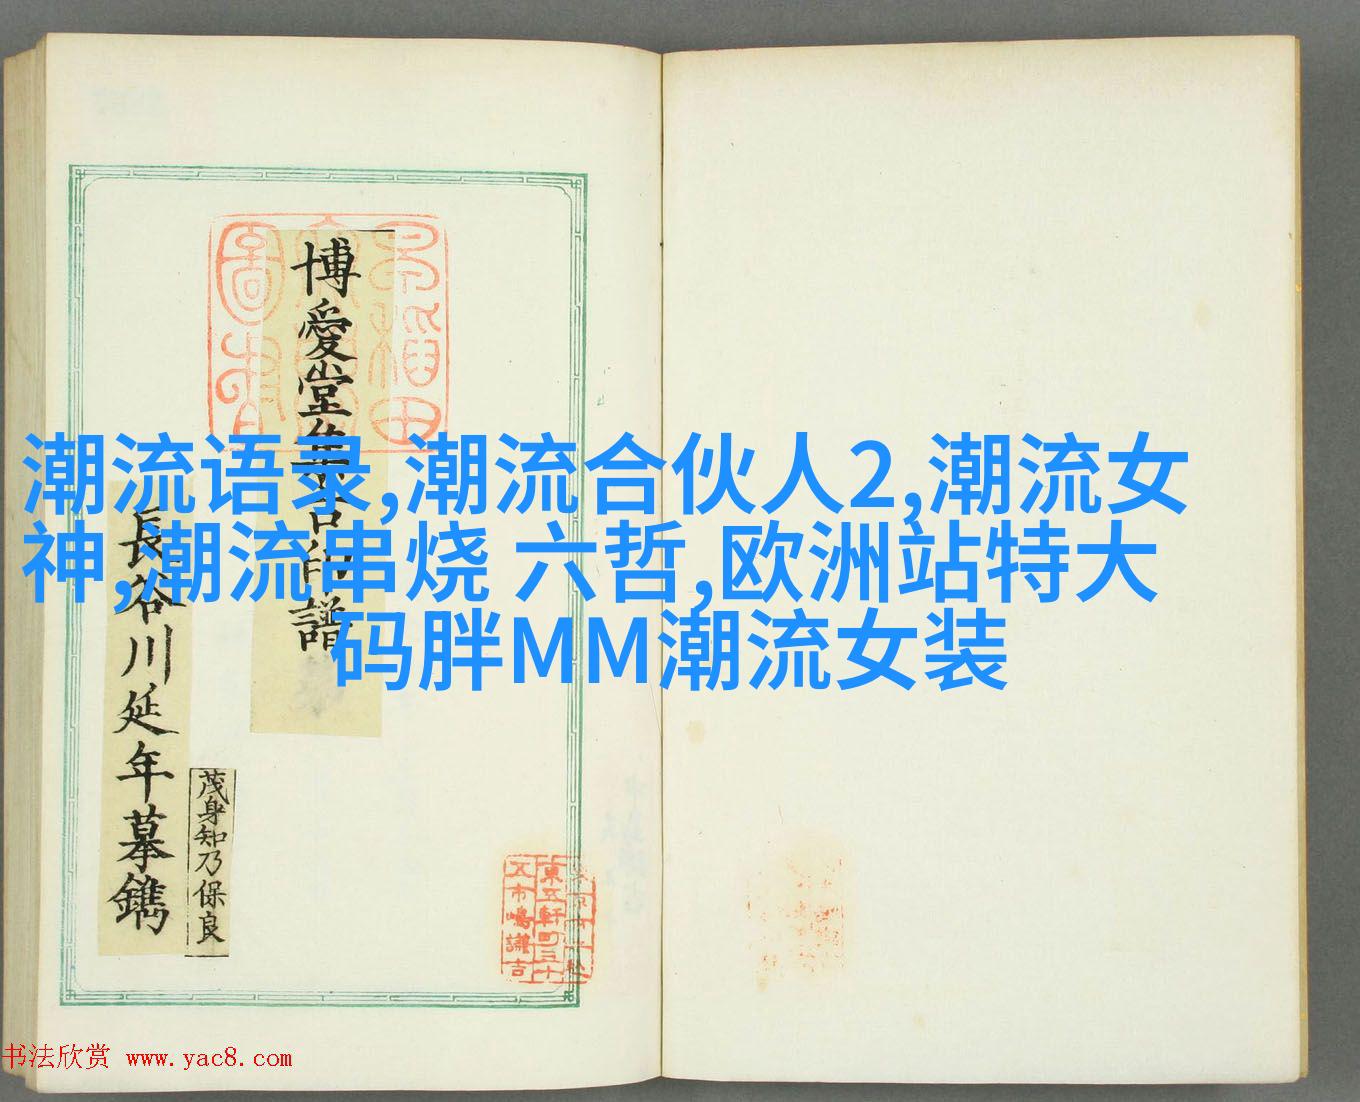 博愛堂集古印譜
長谷川延年摹鐫
茂身知乃保良
潮流语录,潮流合伙人2,潮流女
神,潮流串烧 六哲,欧洲站特大
码胖MM潮流女装
東五軒町三十
五市嶋謙吉
书法欣赏 www.yac8.com